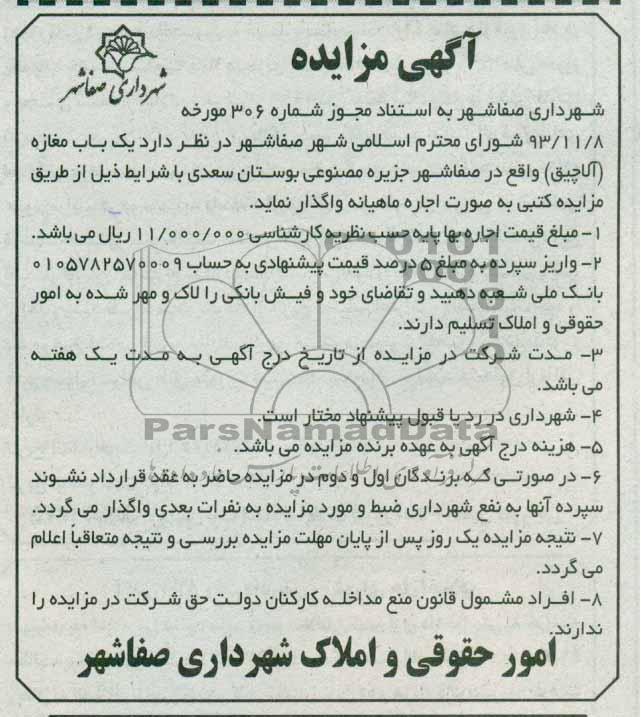 آگهی مزایده
شهرداری صفاشهر
شهرداری صفاشهر به استناد مجوز شماره ۳۰۶ مورخه
۹۳/۱۱/۸ شورای محترم اسلامی شهر صفاشهر در نظر دارد یک باب مغازه
(آلاچیق) واقع در صفاشهر جزیره مصنوعی بوستان سعدی با شرایط ذیل از طریق
مزایده کتبی به صورت اجاره ماهیانه واگذار نماید.
۱- مبلغ قیمت اجاره بها پایه حسب نظریه کارشناسی ۱۱/۰۰۰/۰۰۰ ریال می باشد.
۲- واریز سپرده به مبلغ ۵ درصد قیمت پیشنهادی به حساب ۰۱۰۵۷۸۲۵۷۰۰۰۹
بانک ملی شعبه دهبید و تقاضای خود و فیش بانکی را لاک و مهر شده به امور
حقوقی و املاک تسلیم دارند.
۳- مدت شرکت در مزایده از تاریخ درج آگهی به مدت یک هفته
می باشد.
۴- شهرداری در رد یا قبول پیشنهاد مختار است.
ParsNamadData
۵- هزینه درج آگهی به عهده برنده مزایده می باشد.
۶- در صورتی که برندگان اول و دوم در مزایده حاضر به عقد قرارداد نشوند
سپرده آنها به نفع شهرداری ضبط و مورد مزایده به نفرات بعدی واگذار می گردد.
۷- نتیجه مزایده یک روز پس از پایان مهلت مزایده بررسی و نتیجه متعاقباً اعلام
می گردد.
۸- افراد مشمول قانون منع مداخله کارکنان دولت حق شرکت در مزایده را
ندارند.
امور حقوقی و املاک شهرداری صفاشهر